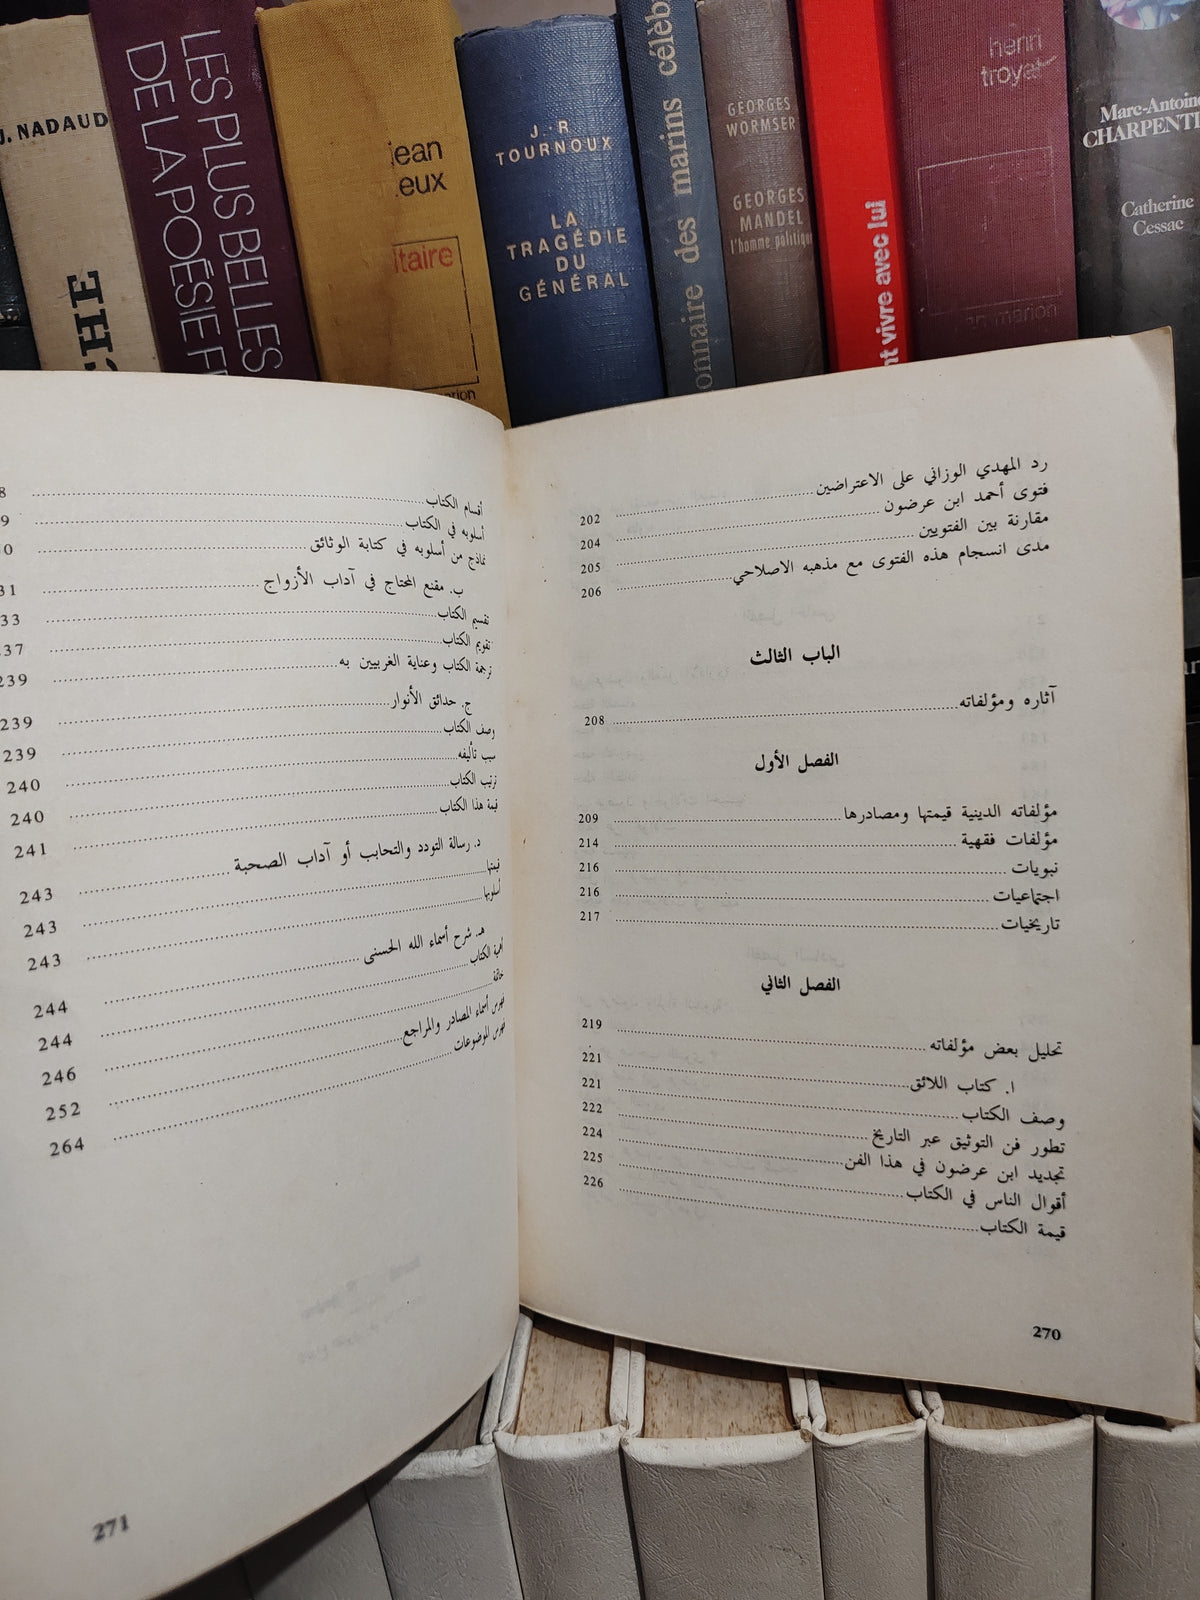 J. NADAUD
CHE
LES PLUS BELLES
DE LA POÉSIE
jean
eux
ltaire
J.-R.
TOURNOUX
LA
TRAGÉDIE
DU
GÉNÉRAL
onnaire des marins célèb
GEORGES
WORMSER
GEORGES
MANDEL
l'homme politique
nt vivre avec lui
henri
troyat
Marc-Antoine
CHARPENTI
Catherine
Cessac
رد المهدي الوزاني على الاعتراضين 202
فتوى أحمد ابن عرضون 204
مقارنة بين الفتويين 205
مدى انسجام هذه الفتوى مع مذهبه الاصلاحي 206
الباب الثالث
آثاره ومؤلفاته 208
الفصل الأول
مؤلفاته الدينية قيمتها ومصادرها 209
مؤلفات فقهية 214
نبويات 216
اجتماعيات 216
تاريخيات 217
الفصل الثاني
تحليل بعض مؤلفاته 219
ا. كتاب اللائق 221
وصف الكتاب 221
تطور فن التوثيق عبر التاريخ 222
تجديد ابن عرضون في هذا الفن 224
أقوال الناس في الكتاب 225
قيمة الكتاب 226
270
أقسام الكتاب 8
أسلوبه في الكتاب 9
نماذج من أسلوبه في كتابة الوثائق 0
ب. مقنع المحتاج في آداب الأزواج 31
تقسيم الكتاب 33
تقويم الكتاب 37
ترجمة الكتاب وعناية الغربيين به 239
ج. حدائق الأنوار 239
وصف الكتاب 239
سبب تأليفه 240
ترتيب الكتاب 240
قيمة هذا الكتاب 241
د. رسالة التودد والتحابب أو آداب الصحبة 243
قيمتها 243
أسلوبها 243
هـ. شرح أسماء الله الحسنى 244
أهمية الكتاب 244
خاتمة 246
فهرس أسماء المصادر والمراجع 252
فهرس الموضوعات 264
271